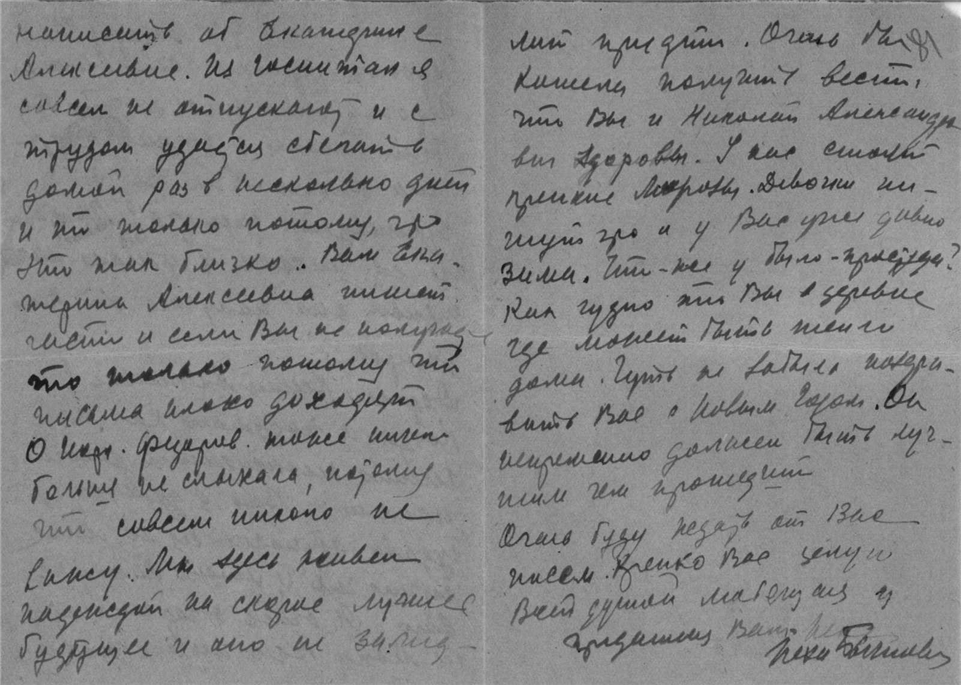 написать об Екатерине
Алексеевне. Из госпиталя
совсем не отпускают и с
трудом удается сбегать
домой раз в несколько дней
и то только потому, что
это так близко. Вам Ека-
терина Алексеевна пишет
часто и если Вы не получае
то только потому что
письма плохо доходят
О Федоров. тоже ничего
больше не слыхала, потому
что совсем никого не
вижу. Мы здесь живем
надеждой на скорое лучшее
будущее и оно не замед-
лит придти. Очень бы
81
хотела получить весть,
что Вы и Николай Александро
вич здоровы. У нас стоят
крепкие морозы. Девочки пи-
шут что и у Вас уже давно
зима. Что-же у было-
Как чудно что Вы в деревне
где может быть тепло
дома. Чуть не забыла поздра-
вить Вас с Новым Годом. Он
непременно должен быть луч-
шим чем прошедший
Очень буду ждать от Вас
писем. Крепко Вас целую
Всей душой любящая и
преданная Вам